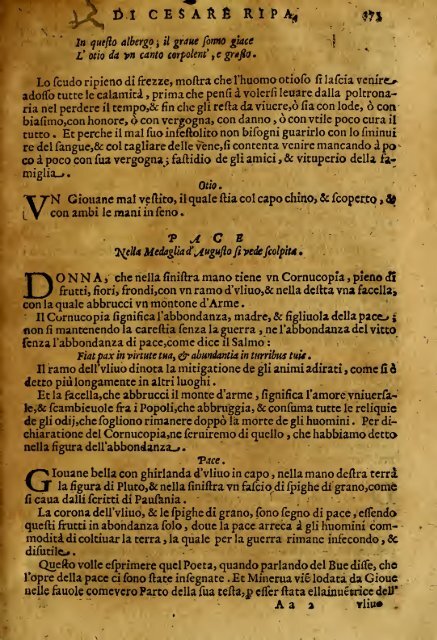 DI CESARE RIPA. 373
In questo albergo; il graue sonno giace
L'otio da vn canto corpolent', e grasso.
Lo scudo ripieno di frezze, mostra che l'huomo otioso si lascia venire
adosso tutte le calamità, prima che pensi à volersi leuare dalla poltrona-
ria nel perdere il tempo,& fin che gli resta da viuere,ò sia con lode, ò con
biasimo,con honore, ò con vergogna, con danno, ò con vtile poco cura il
tutto. Et perche il mal suo infestolito non bisogni guarirlo con lo sminui
re del sangue,& col tagliare delle vene,si contenta venire mancando à po
cò à poco con sua vergogna; fastidio de gli amici, & vituperio della fa-
miglia.
Otio.
VN Giouane mal vestito, il quale stia col capo chino, & scoperto, &
con ambi le mani in seno.
PACE
Nella Medaglia d'Augusto si vede scolpita.
DONNA, che nella sinistra mano tiene vn Cornucopia, pieno di
frutti, fiori, frondi,con vn ramo d'vliuo,& nella destra vna facella,
con la quale abbrucci vn montone d'Arme.
Il Cornucopia significa l'abbondanza, madre, & figliuola della pace;
non si mantenendo la carestia senza la guerra, ne l'abbondanza del vitto
senza l'abbondanza di pace,come dice il Salmo:
Fiat pax in virtute tua, & abundantia in turribus tuis.
Il ramo dell'vliuo dinota la mitigatione de gli animi adirati, come si è
detto più longamente in altri luoghi.
Et la facella,che abbrucci il monte d'arme, significa l'amore vniuersa-
le,& scambieuole fra i Popoli,che abbruggia, & consuma tutte le reliquie
de gli odij,che sogliono rimanere doppò la morte de gli huomini. Per di-
chiaratione del Cornucopia,ne seruiremo di quello, che habbiamo detto
nella figura dell'abbondanza.
Pace.
GIouane bella con ghirlanda d'vliuo in capo, nella mano destra terrà
la figura di Pluto,& nella sinistra vn fascio di spighe di grano,come
si caua dalli scritti di Pausania.
La corona dell'vliuo, & le spighe di grano, sono segno di pace, essendo
questi frutti in abondanza solo, doue la pace arreca à gli huomini com-
modità di coltiuar la terra, la quale per la guerra rimane infecondo, &
disutile.
Questo volle esprimere quel Poeta, quando parlando del Bue disse, che
l'opre della pace ci sono state insegnate. Et Minerua viē lodata da Gioue
nelle fauole comevero Parto della sua testa, ꝑ esser stata ella inuētrice dell'
Aa 2 vliuo